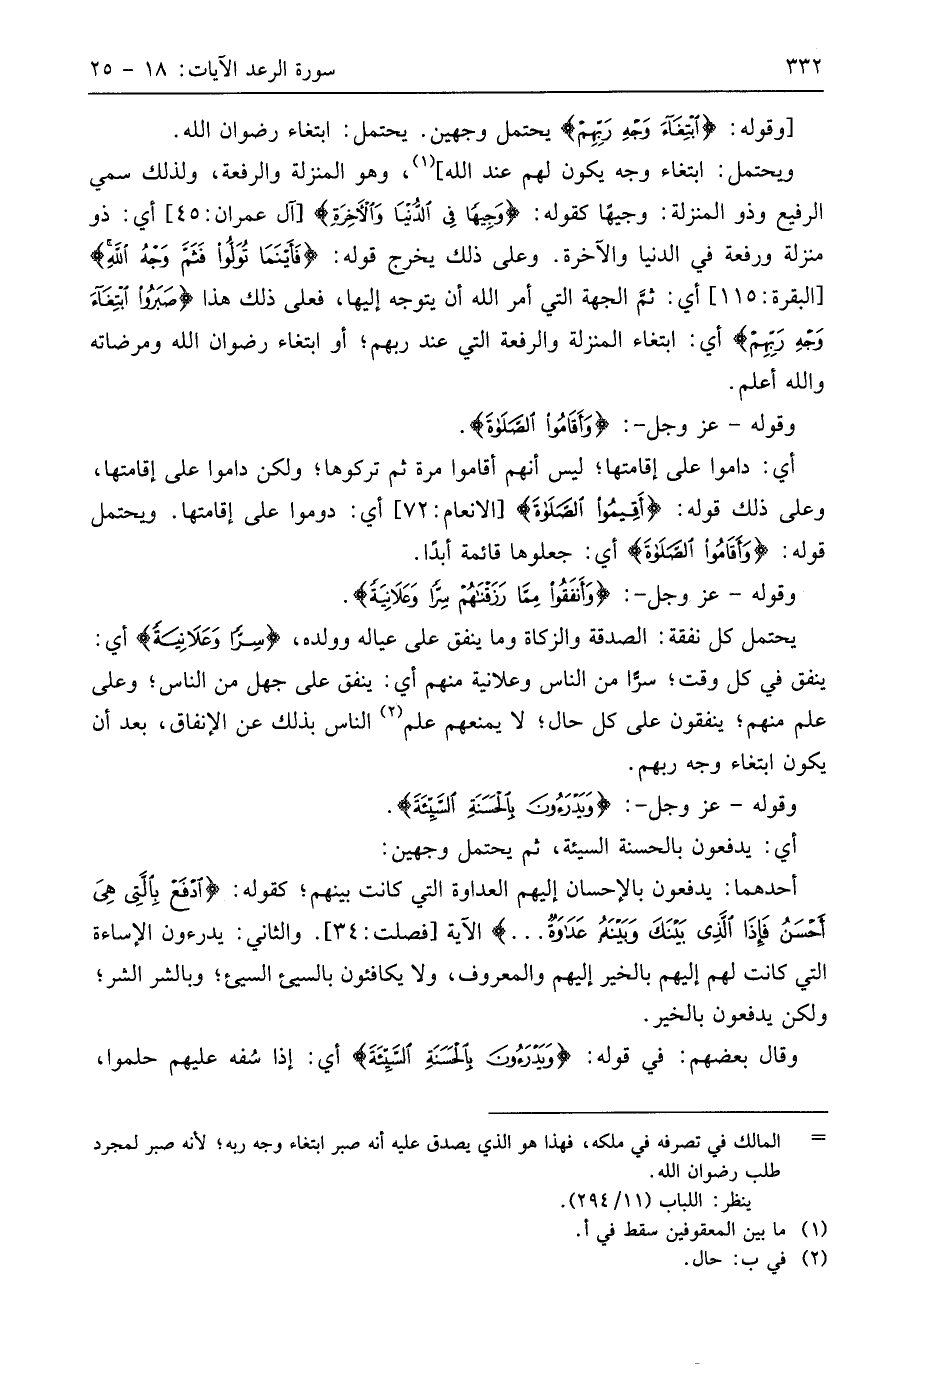 ٣٣٢ سورة الرعد الآيات: ١٨ - ٢٥
[وقوله: ﴿ٱبْتِغَآءَ وَجْهِ رَبِّهِمْ﴾ يحتمل وجهين. يحتمل: ابتغاء رضوان الله.
ويحتمل: ابتغاء وجه يكون لهم عند الله](١)، وهو المنزلة والرفعة، ولذلك سمي
الرفيع وذو المنزلة: وجيهًا كقوله: ﴿وَجِيهًا فِى ٱلدُّنْيَا وَٱلْأَخِرَةِ﴾ [آل عمران:٤٥] أي: ذو
منزلة ورفعة في الدنيا والآخرة. وعلى ذلك يخرج قوله: ﴿فَأَيْنَمَا تُوَلُّوا۟ فَثَمَّ وَجْهُ ٱللَّهِۚ﴾
[البقرة:١١٥] أي: ثمَّ الجهة التي أمر الله أن يتوجه إليها، فعلى ذلك هذا ﴿صَبَرُوا۟ ٱبْتِغَآءَ
وَجْهِ رَبِّهِمْ﴾ أي: ابتغاء المنزلة والرفعة التي عند ربهم؛ أو ابتغاء رضوان الله ومرضاته
والله أعلم.
وقوله - عز وجل-: ﴿وَأَقَامُوا۟ ٱلصَّلَوٰةَ﴾.
أي: داموا على إقامتها؛ ليس أنهم أقاموا مرة ثم تركوها؛ ولكن داموا على إقامتها،
وعلى ذلك قوله: ﴿أَقِيمُوا۟ ٱلصَّلَوٰةَ﴾ [الانعام:٧٢] أي: دوموا على إقامتها. ويحتمل
قوله: ﴿وَأَقَامُوا۟ ٱلصَّلَوٰةَ﴾ أي: جعلوها قائمة أبدًا.
وقوله - عز وجل-: ﴿وَأَنفَقُوا۟ مِمَّا رَزَقْنَٰهُمْ سِرًّا وَعَلَانِيَةً﴾.
يحتمل كل نفقة: الصدقة والزكاة وما ينفق على عياله وولده، ﴿سِرًّا وَعَلَانِيَةً﴾ أي:
ينفق في كل وقت؛ سرًّا من الناس وعلانية منهم أي: ينفق على جهل من الناس؛ وعلى
علم منهم؛ ينفقون على كل حال؛ لا يمنعهم علم(٢) الناس بذلك عن الإنفاق، بعد أن
يكون ابتغاء وجه ربهم.
وقوله - عز وجل-: ﴿وَيَدْرَءُونَ بِٱلْحَسَنَةِ ٱلسَّيِّئَةَ﴾.
أي: يدفعون بالحسنة السيئة، ثم يحتمل وجهين:
أحدهما: يدفعون بالإحسان إليهم العداوة التي كانت بينهم؛ كقوله: ﴿ٱدْفَعْ بِٱلَّتِى هِىَ
أَحْسَنُ فَإِذَا ٱلَّذِى بَيْنَكَ وَبَيْنَهُۥ عَدَٰوَةٌ...﴾ الآية [فصلت:٣٤]. والثاني: يدرءون الإساءة
التي كانت لهم إليهم بالخير إليهم والمعروف، ولا يكافئون بالسيئ السيئ؛ وبالشر الشر؛
ولكن يدفعون بالخير.
وقال بعضهم: في قوله: ﴿وَيَدْرَءُونَ بِٱلْحَسَنَةِ ٱلسَّيِّئَةَ﴾ أي: إذا سُفه عليهم حلموا،
= المالك في تصرفه في ملكه، فهذا هو الذي يصدق عليه أنه صبر ابتغاء وجه ربه؛ لأنه صبر لمجرد
طلب رضوان الله.
ينظر: اللباب (١١/ ٢٩٤).
(١) ما بين المعقوفين سقط في أ.
(٢) في ب: حال.